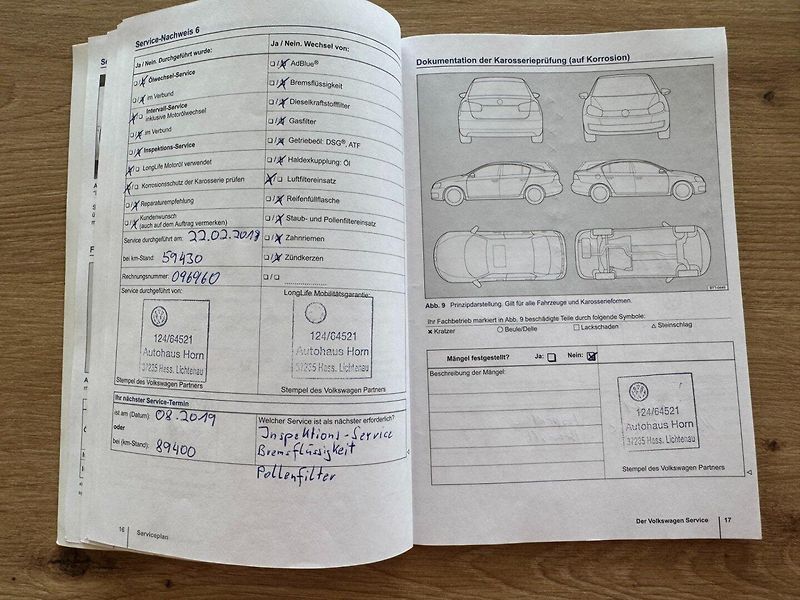 Service-Nachweis 6
Ja / Nein. Durchgeführt wurde:
Ölwechsel-Service
im Verbund
Intervall-Service
inklusive Motorölwechsel
im Verbund
Inspektions-Service
LongLife Motoröl verwendet
Korrosionsschutz der Karosserie prüfen
Reparaturempfehlung
Kundenwunsch
(auch auf dem Auftrag vermerken)
Service durchgeführt am: 22.02.2019
bei km-Stand: 59430
Rechnungsnummer: 096960
Service durchgeführt von:
124/64521
Autohaus Horn
37235 Hess. Lichtenau
Stempel des Volkswagen Partners
Ja / Nein. Wechsel von:
AdBlue®
Bremsflüssigkeit
Dieselkraftstofffilter
Gasfilter
Getriebeöl: DSG®, ATF
Haldexkupplung: Öl
Luftfiltereinsatz
Reifenfüllflasche
Staub- und Pollenfiltereinsatz
Zahnriemen
Zündkerzen
LongLife Mobilitätsgarantie:
124/64521
Autohaus Horn
37235 Hess. Lichtenau
Stempel des Volkswagen Partners
Ihr nächster Service-Termin
ist am (Datum): 08.2019
oder
bei (km-Stand): 89400
Welcher Service ist als nächster erforderlich?
Inspektions-Service
Bremsflüssigkeit
Pollenfilter
16 Serviceplan
Dokumentation der Karosserieprüfung (auf Korrosion)
Abb. 9 Prinzipdarstellung. Gilt für alle Fahrzeuge und Karosserieformen.
Ihr Fachbetrieb markiert in Abb. 9 beschädigte Teile durch folgende Symbole:
Kratzer Beule/Delle Lackschaden Steinschlag
Mängel festgestellt? Ja: Nein:
Beschreibung der Mängel:
124/64521
Autohaus Horn
37235 Hess. Lichtenau
Stempel des Volkswagen Partners
Der Volkswagen Service 17